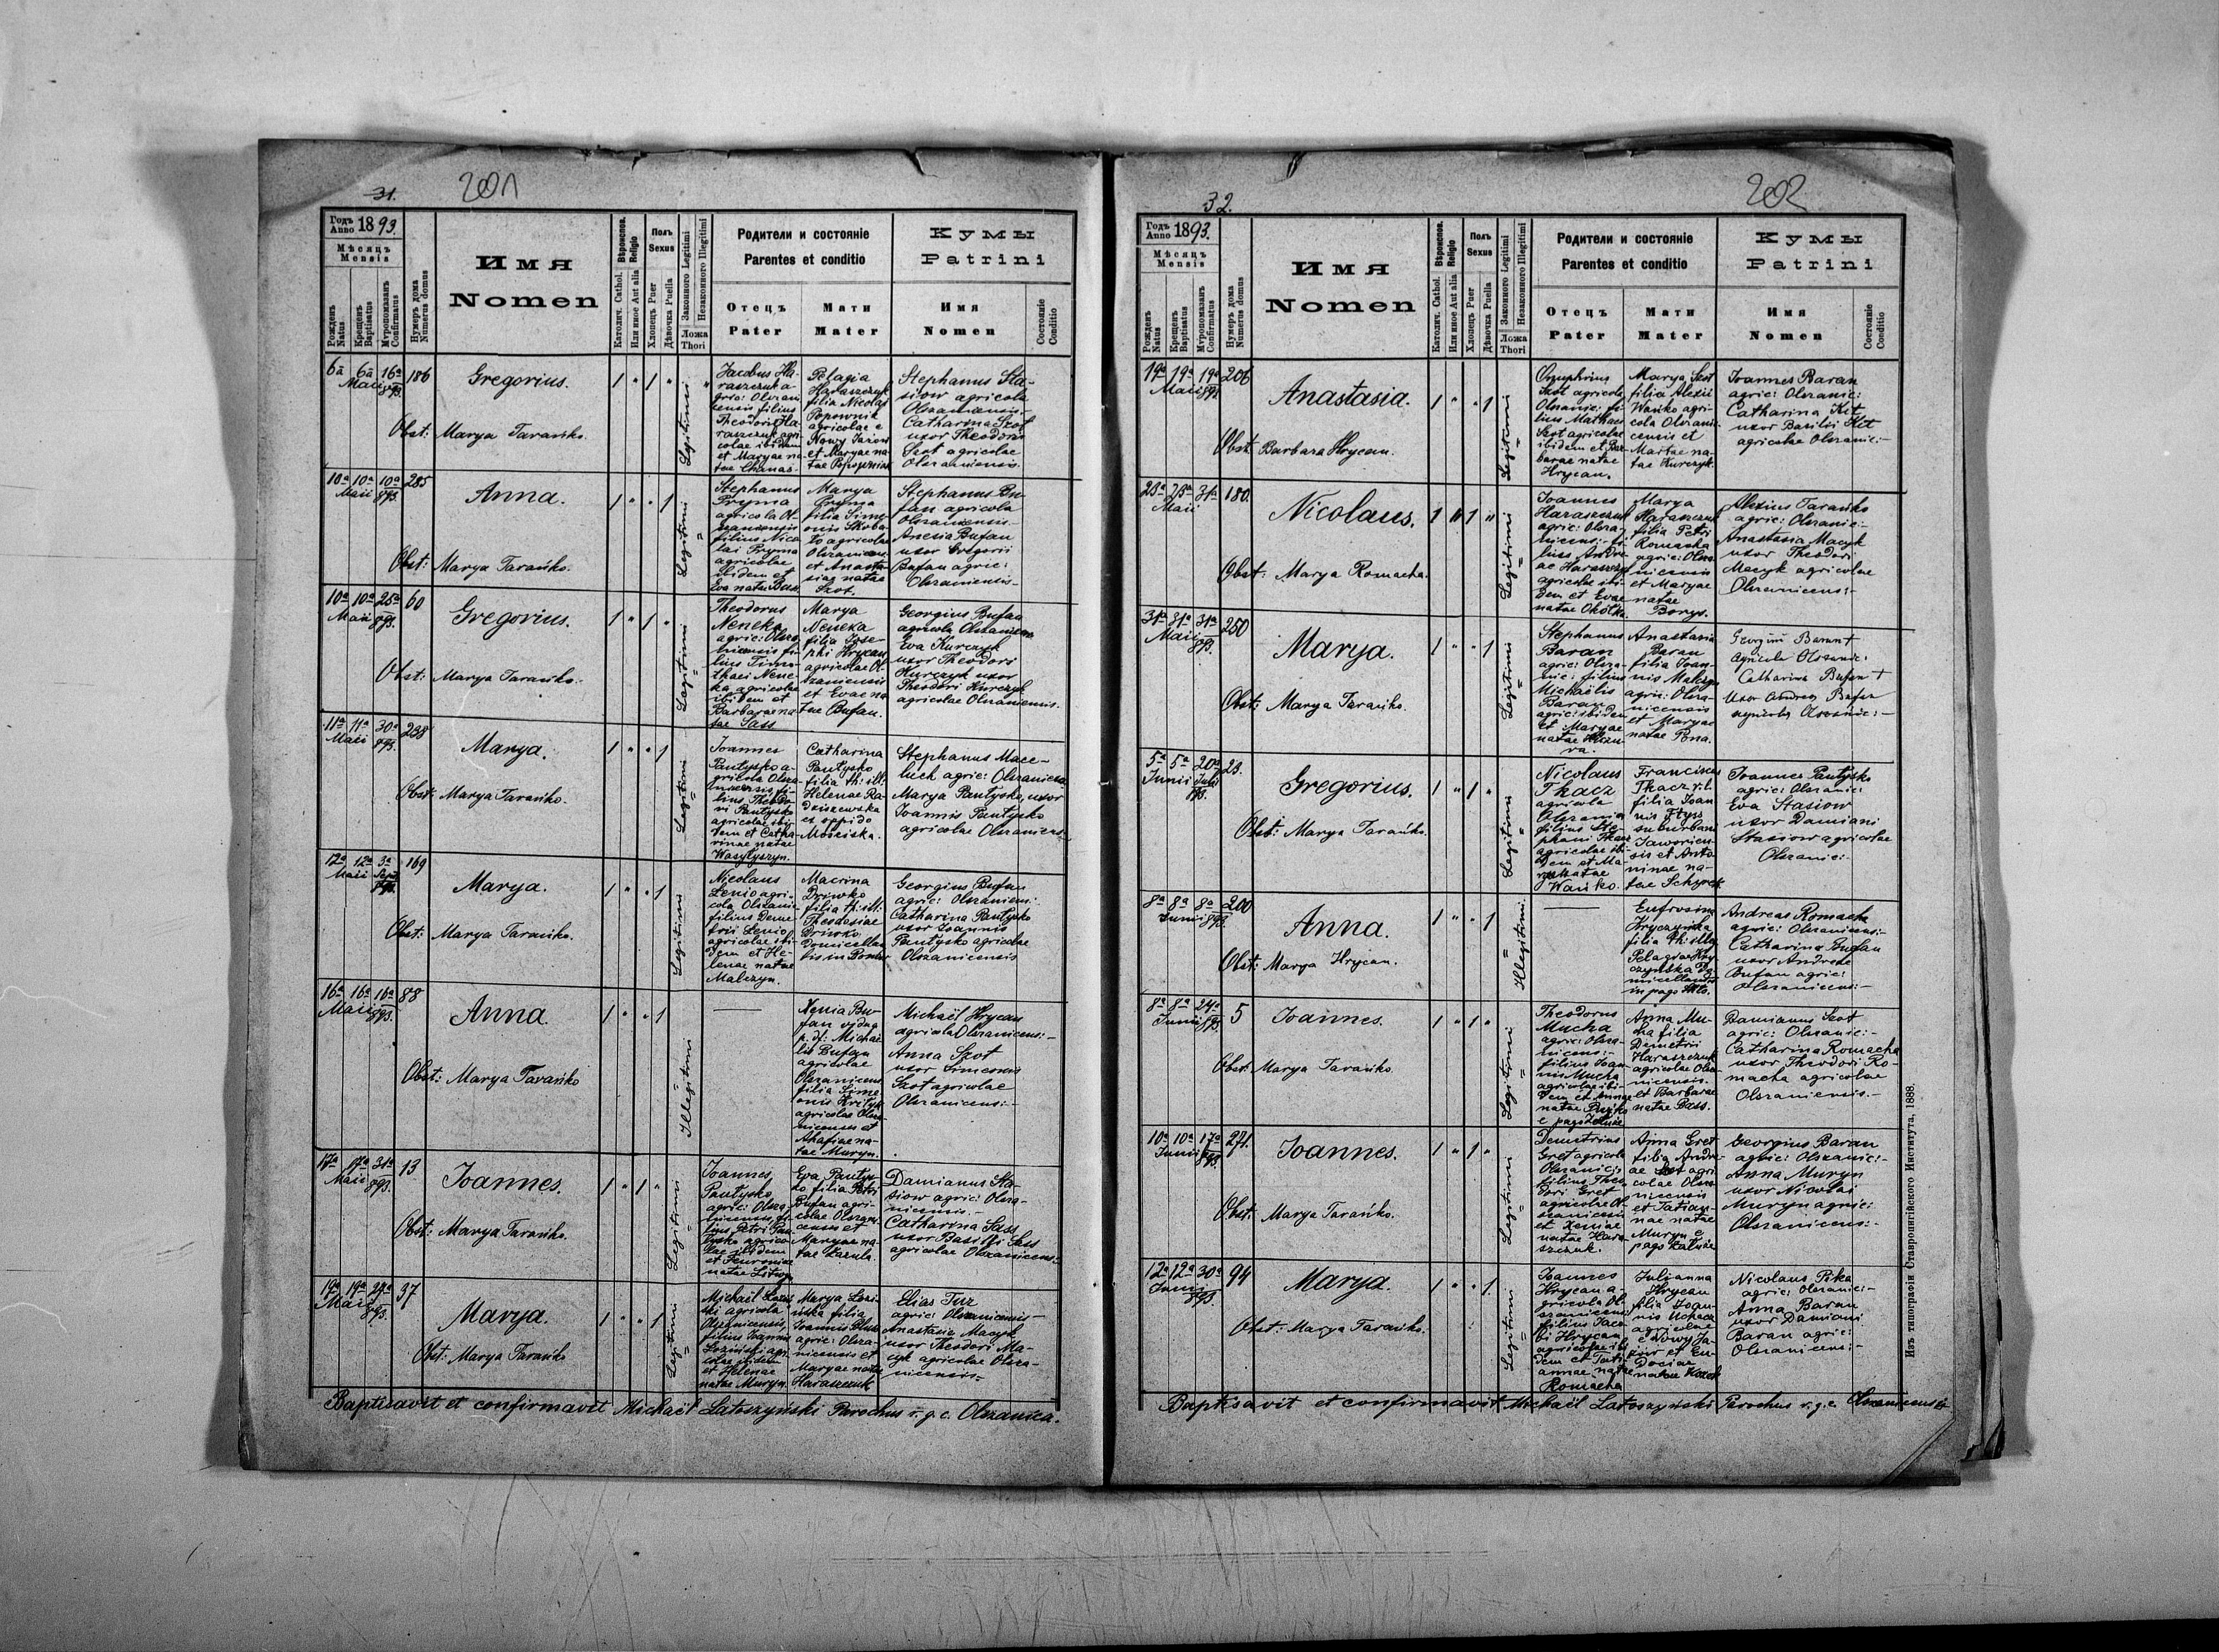 31.
201
Годъ Anno 1893.
Мѣсяцъ
Mensis
Рожденъ Natus
Крещенъ Baptisatus
Мѵропомазанъ Confirmatus
Нумеръ дома Numerus domus
Имя
Nomen
Вѣроиспов. Religio
Католич. Cathol.
Или иное Aut alia
Полъ
Sexus
Хлопецъ Puer
Дѣвочка Puella
Законного Legitimi
Незаконного Illegitimi
Ложа
Thori
Родители и состояніе
Parentes et conditio
Отецъ
Pater
Мати
Mater
Кумы
Patrini
Имя
Nomen
Состояніе
Conditio
6a 6a 16a 186
Maii 893.
Gregorius.
Obst: Marya Tarańko.
Legitimi
Jacobus Ha-
raszczuk a-
gric: Olszan
icensis filius
Theodori Ha-
raszczuk agri
colae ibidem
et Maryae na-
tae Chanas.
Pelagia
Haraszczuk
filia Nicolai
Popownik
agricolae e
Nowy Jażow
et Maryae na-
tae Popownik
Stephanus Sta-
siow agricola
Olszanicensis.-
Catharina Szot
uxor Theodori
Szot agricolae
Olszanicensis.
10a 10a 10a 285
Maii 893.
Anna.
Obst: Marya Tarańko.
Legitimi
Stephanus
Pryma
agricola Ol-
szanicensis
filius Nico
lai Pryma
agricolae
ibidem et
Eva natae
Marya
Pryma
filia Sime-
onis Skoba-
ło agricolae
Olszanicens.
et Anasta-
siae natae
Szot.
Stephanus Bu-
fan agricola
Olszanicensis.
Anesia Bufan
uxor Gregorii
Bufan agric:
Olszanicensis-
10a 10a 25a 60
Maii 893.
Gregorius.
Obst: Marya Tarańko.-
Legitimi
Theodorus
Neneka
agric: Olsza
nicensis fi-
lius Timo-
thaei Nene-
ka agricolae
ibidem et
Barbarae na-
tae Sass
Marya
Neneka
filia Jose-
phi Hrycan
agricolae Ol-
szanicensis
et Evae na
tae Bufan.
Georgius Bufan
agricola Olszanicens
Eva Kurczyk
uxor Theodori
Kurczyk uxor
Theodori Kurczyk
agricolae Olszanicensis.
11a 11a 30a 238
Maii 893.
Marya.
Obst: Marya Tarańko.
Legitimi
Joannes
Pautysko a-
gricola Olsza-
nicensis fi-
lius Theodo-
ri Pautysko
agricolae ibi-
dem et Catha-
rinae natae
Wasylyszyn.
Catharina
Pautysko
filia th: ill:
Helenae Ra-
dziszewska
ex oppido
Mościska.
Stephanus Mace-
luch agric: Olszanicens.
Marya Pautysko, uxor
Joannis Pautysko
agricolae Olszanicens.
12a 12a 3a 169
Maii Sept 893.
Marya.
Obst: Marya Tarańko.
Legitimi
Nicolaus
Lenio agri-
cola Olszanic
filius Deme-
trii Lenio
agricolae ibi-
dem et He-
lenae natae
Malczyn.
Macrina
Driwko
filia th: ill:
Theodosiae
Driwko
Domicellae
Georgius Bufan
agric: Olszanicens:.
Catharina Pautysko
uxor Joannis
Pautysko agricolae
Olszanicensis
16a 16a 16a 88
Maii 893.
Anna.
Obst: Marya Tarańko
Illegitimi
Xenia Bu-
fan vidua
p. d. Michae
lis Bufan
agricolae
Olszanicens
filia Sime-
onis
agricolae Olsza
nicensis et
Ahafiae na-
tae Muryn.
Michaël Hrycan
agricola Olszanicens:-
Anna Szot
uxor Simeonis
Szot agricolae
Olszanicens:-
17a 17a 31a 13
Maii 893.
Joannes.
Obst: Marya Tarańko.
Legitimi
Joannes
Pautysko
agric: Olsza
nicensis fi-
lius Petri Pau
tysko agrico-
lae ibidem
et Feuroniae
natae
Eva Pautys-
ko filia Petri
Bufan agri-
colae Olszani
censis et
Maryae na-
tae Lazula.
Damianus Sta-
siow agric: Olsza-
nicensis.-
Catharina Sass
uxor Basilii Sass
agricolae Olszanicens:.
19a 19a 27a 37
Maii 893.
Marya.
Obst: Marya Tarańko
Legitimi
Michaël Lozin
ski agricola
Olszanicensis,
filius Joannis
Loziński agri-
colae ibidem
et Helenae
natae Muryn.
Marya Lozi-
ńska filia
Joannis
agric: Olsza-
nicensis et
Maryae natae
Haraszczuk
Elias Tuz
agric: Olszanicensis-
Anastasia Macyk
uxor Theodori Ma-
cyk agricolae Olsza-
nicensis-
Baptisavit et confirmavit Michaël Latoszyński Parochus r. g. c. Olszanica.
32.
202
Годъ Anno 1893.
Мѣсяцъ
Mensis
Рожденъ Natus
Крещенъ Baptisatus
Мѵропомазанъ Confirmatus
Нумеръ дома Numerus domus
Имя
Nomen
Вѣроиспов. Religio
Католич. Cathol.
Или иное Aut alia
Полъ
Sexus
Хлопецъ Puer
Дѣвочка Puella
Законного Legitimi
Незаконного Illegitimi
Ложа
Thori
Родители и состояніе
Parentes et conditio
Отецъ
Pater
Мати
Mater
Кумы
Patrini
Имя
Nomen
Состояніе
Conditio
19a 19a 19a 206
Maii 893.
Anastasia.
Obst: Barbara Hrycan.
Legitimi
Onuphrius
Szot agricola
Olszanic: fi-
lius Mathaei
Szot agricolae
ibidem et Bar
barae natae
Hrycan.
Marya Szot
filia Alexii
Wańko agri-
cola Olszani-
censis et
Martae na-
tae Kurczyk.
Joannes Baran
agric: Olszanic:
Catharina Kit
uxor Basilii Kit
agricolae Olszanic:-
23a 23a 31a 180.
Maii
Nicolaus.
Obst: Marya Romacha.
Legitimi
Joannes
Haraszczuk
agric: Olsza-
nicens: fi-
lius Andre-
ae Haraszczuk
agricolae ibi-
dem et Evae
natae
Marya
Haraszczuk
filia Petri
Romacha
agric: Olsza
nicensis
et Maryae
natae
Borys.
Alexius Tarańko
agric: Olszanic:-
Anastasia Macyk
uxor Theodori
Macyk agricolae
Olszanicens:-
31a 31a 31a 250
Maii 893.
Marya.
Obst: Marya Tarańko.
Legitimi
Stephanus
Baran
agric: Olsza-
nic: filius
Michaëlis
Baran
agric: ibidem
et Maryae
natae
Anastasia
Baran
filia Joan-
nis Malczyn
agric: Olsza-
nicensis
et Maryae
natae Pona.
Georgius Baran +
agricola Olszanic:
Catharina Bufan +
uxor Andreae Bufan
agricolae Olszanic:-
5a 5a 20a 23.
Junii Julii 893.
Gregorius.
Obst: Marya Tarańko.
Legitimi
Nicolaus
Tkacz
agricola
Olszanic
filius Ste-
phani Tkacz
agricolae ibi-
dem et Ma-
ryae natae
Wańko.
Francisca
Tkacz r. l.
filia Joan
nis
suburbani
Jaworien-
sis et Anto-
ninae na-
tae
Joannes Pautysko
agric: Olszanic:
Eva Stasiow
uxor Damiani
Stasiow agricolae
Olszanic:-
8a 8a 8a 200
Junii 893.
Anna.
Obst: Marya Hrycan.
Illegitimi
Eufrosina
Kryczyńska
filia th: illeg
Pelagiae Kry
czyńska Do-
micellae
in pago
Andreas Romacha
agric: Olszanicens:-
Catharina Bufan
uxor Andreae
Bufan agric:
Olszanicens:-
8a 8a 24a 5
Junii 893.
Joannes.
Obst: Marya Tarańko.
Legitimi
Theodorus
Mucha
agric: Olsza-
nicens:-
filius Joan
nis Mucha
agricolae ibi-
dem et Annae
natae
Anna Mu-
cha filia
Demetrii
Haraszczuk
agricolae Olsza
nicensis
et Barbarae
natae Bass.
Damianus Szot
agric: Olszanic:-
Catharina Romacha
uxor Theodori Ro-
macha agricolae
Olszanicensis.-
10a 10a 17a 271.
Junii 893.
Joannes.
Obst: Marya Tarańko.
Legitimi
Demetrius
Gret agricola
Olszanic:
filius Theo
dori Gret
agricolae Ol
szanicensis
et Xeniae
natae Hara-
szczuk.
Anna Gret
filia Andre-
ae Szot agri
colae Olsza
nicensis
et Tatian-
nae natae
Muryn e
pago
Georgius Baran
agric: Olszanic:-
Anna Muryn
uxor Nicolai
Muryn agric:
Olszanicens:-
12a 12a 30a 94
Junii 893.
Marya.
Obst: Marya Tarańko.
Legitimi
Joannes
Hrycan a-
gricola Ol-
szanicens:
filius Jaco-
bi Hrycan
agricolae ibi
dem et Tati-
annae natae
Romacha
Julianna
Hrycan
filia Joan-
nis Uchacz
agricolae
e Nowy Ja-
żow et Eu-
dociae
natae
Nicolaus Pika
agric: Olszanic:-
Anna Baran
uxor Damiani
Baran agric:
Olszanicens:-
Baptisavit et confirmavit Michaël Latoszyński Parochus r. g. c. Olszanicensis
Изъ типографіи Ставропигійского Института, 1888.